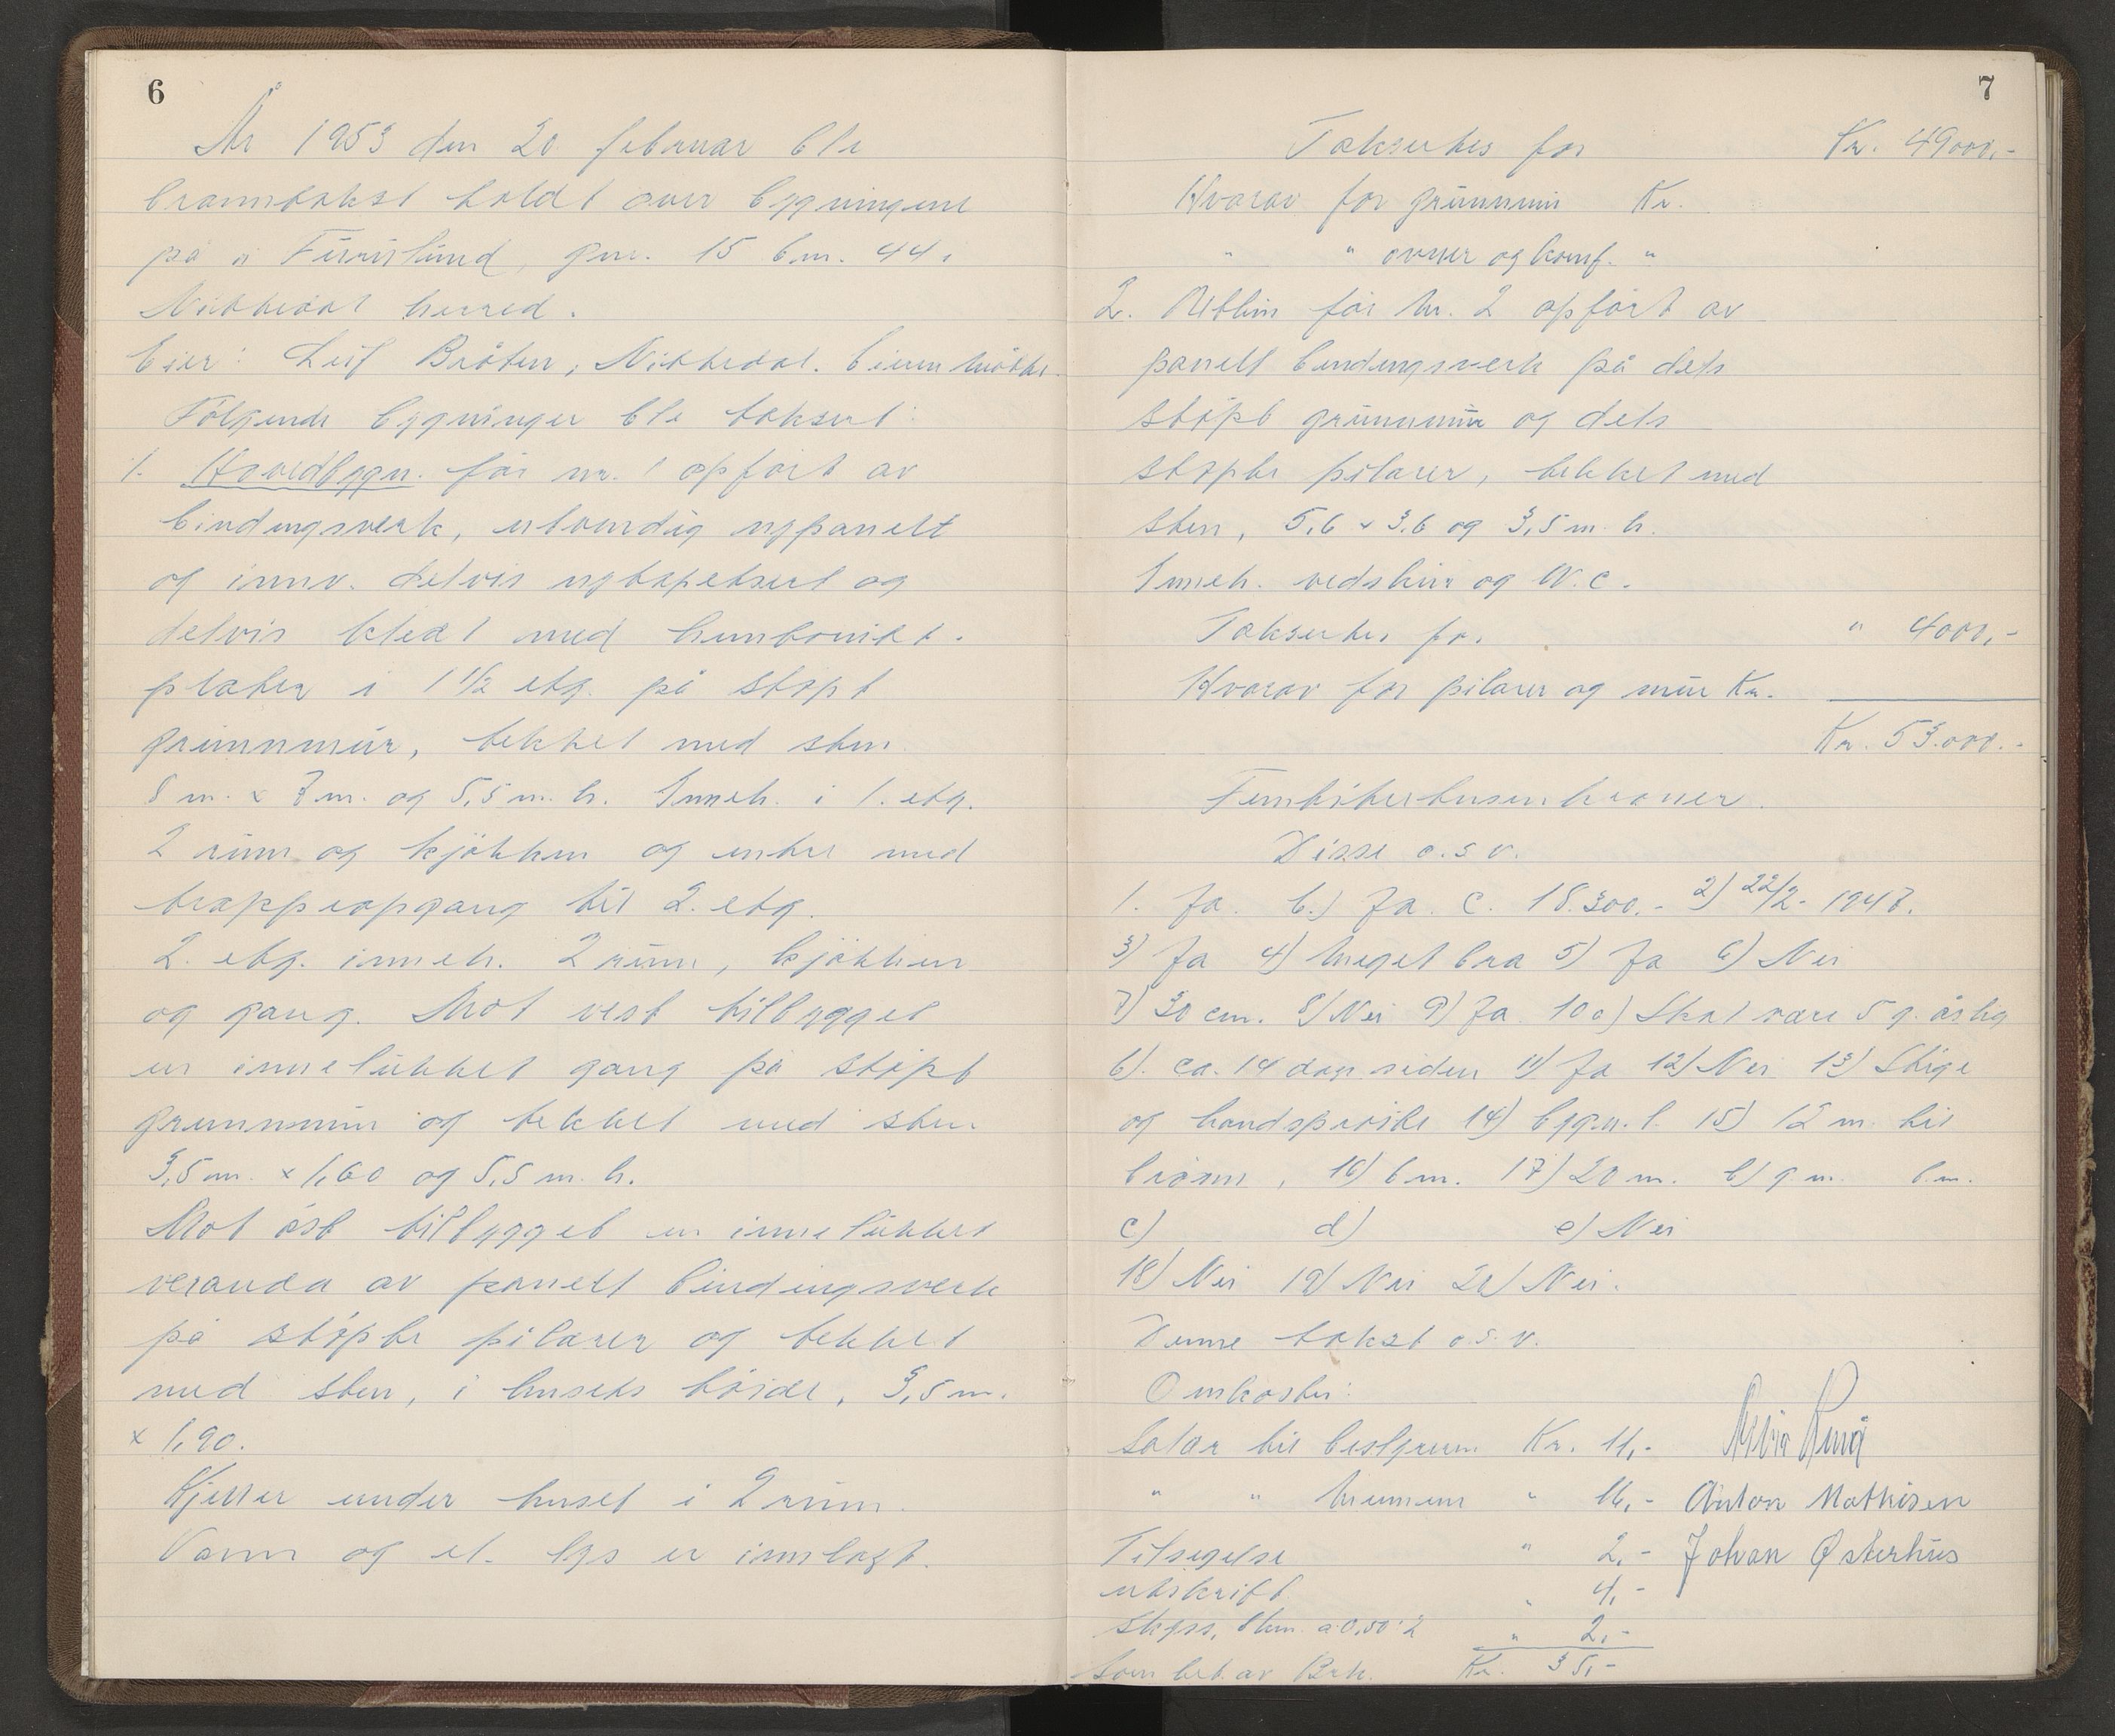 6
År 1953 den 20 februar ble
branntakst holdt over bygningene
på Furulund, gnr. 15 bnr. 44 i
Nittedal herred.
Eier: Leif Bråten, Nittedal. Eieren møtte.
Følgende bygninger ble taksert:
1. Hovedbygn. får nr. 1 opført av
bindingsverk, utvendig nypanelt
og innv. delvis nytapetsert og
delvis kledt med hunbonitt.
plater i 1 1/2 etg. på støpt
grunnmur, tekket med sten
8 m. x 7 m. og 5,5 m. h. Inneh. i 1. etg.
2 rum og kjøkken og entre med
trappeopgang til 2. etg.
2. etg. inneh. 2 rum, kjøkken
og gang. Mot vest tilbygget
en innelukket gang på støpt
grunnmur og tekket med sten
3,5 m. x 1,60 og 5,5 m. h.
Mot øst tilbygget en innelukket
veranda av panelt bindingsverk
på støpte pilarer og tekket
med sten, i husets høide, 3,5 m.
x 1,90.
Kjeller under huset i 2 rum.
Vann og el. lys er innlagt.
7
Takseres for Kr. 49000,-
Hvorav for grunnmur Kr.
" " ovner og komf. "
2. Uthus får nr. 2 opført av
panelt bindingsverk på dels
støpt grunnmur og dels
støpte pilarer, tekket med
sten, 5,6 x 3,6 og 3,5 m. h.
Inneh. vedskur og W.C.
Takseres for " 4000,-
Hvorav for pilarer og mur Kr.
Kr. 53.000.-
Femtitretusen kroner.
Disse o.s.v.
1. Ja. b.) Ja. c. 18.300.- 2) 22/2- 1947.
3) Ja 4) Meget bra 5) Ja 6) Nei
7) 30 cm. 8) Nei 9) Ja 10 a) Skal være 5 g. årlig
b). ca. 14 dager siden 11) Ja 12) Nei 13) Stige
og handsprøite 14) bygn. 1. 15) 12 m. til
brønn, 16) 6 m. 17) 20 m. b) g. nr. b. nr.
c) d) e) Nei
18) Nei 19) Nei 20) Nei.
Denne takst o.s.v.
Omkostn:
Salær til bestyreren Kr. 11,-
" " mennene " 16,- Anton Mathisen
Tilsigelse " 2,- Johan Østerhus
utskrift " 4,-
Skyss, 4 km. a 0,50: 2 " 2,-
Som bet. av Brk. Kr. 35,-